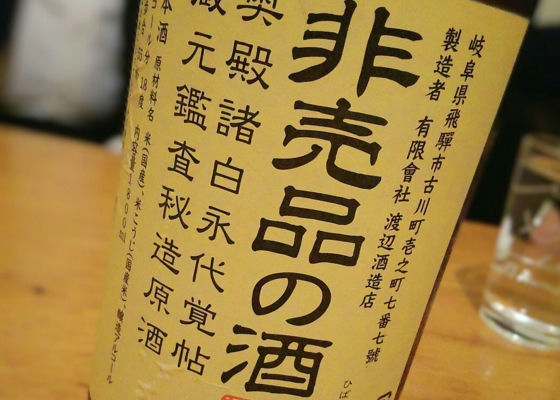 岐阜県飛騨市古川町壱之町七番七號
製造者 有限會社 渡辺酒造店
非売品の酒
奥殿諸白永代覚帖
蔵元鑑査秘造原酒
本酒 原材料名 米(国産)、米こうじ(国産米)、醸造アルコール
コール分 18度 内容量1800ml
ひば